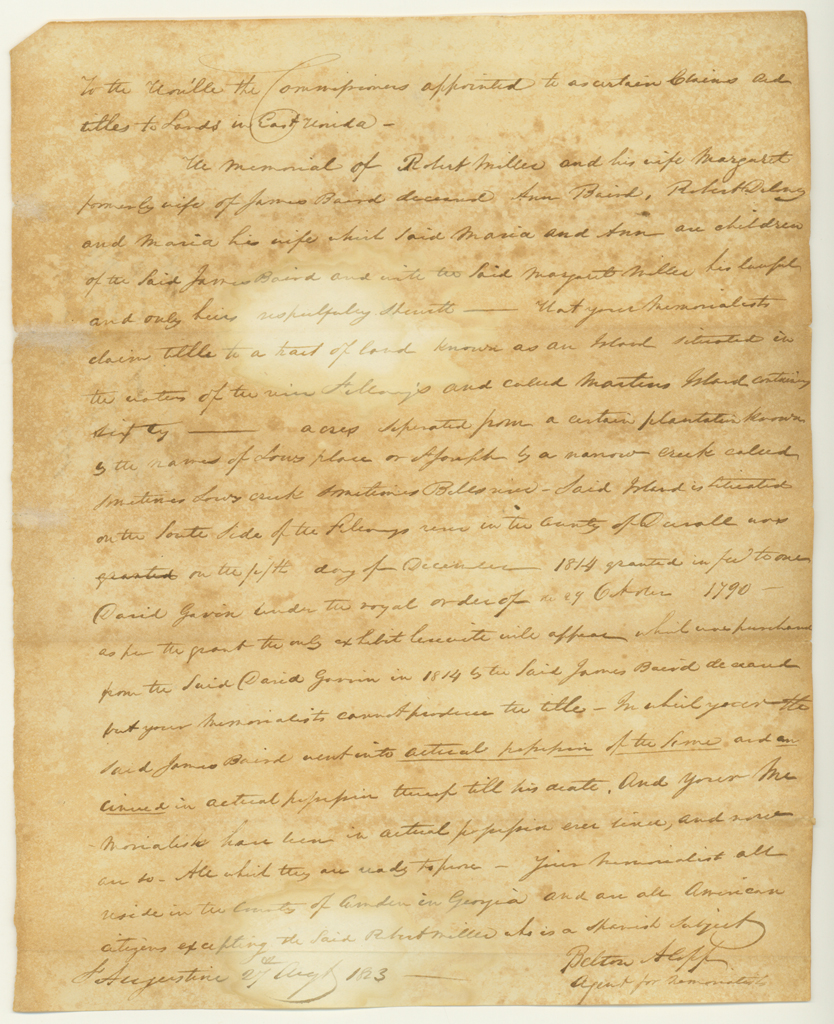 To the Honble the Commissioners appointed to ascertain Claims and
titles to Lands in East Florida —
The Memorial of Robert Miller and his wife Margaret
formerly wife of James Baird deceased Ann Baird, Robert
and Maria his wife which Said Maria and Ann are children
of the Said James Baird and with the Said Margaret Miller his lawful
and only heirs respectfully Sheweth — That your Memorialists
claim title to a tract of land known as an Island situated in
the waters of the river St Marys and called Martins Island containing
sixty — acres seperated from a certain plantation known
by the names of Lows place or St Joseph by a narrow creek called
sometimes Lows creek sometimes Bells river — Said Island is situated
on the South Side of the St Marys river in the County of Duvall was
granted on the day of December 1814 granted in fee to one
David Garvin under the royal order of the 29 October 1790 —
as per the grant the only exhibit herewith will appear which was purchased
from the Said David Garvin in 1814 by the Said James Baird deceased
but your Memorialists cannot produce the title — In which year the
Said James Baird went into actual possession of the Same and
in actual possession thereof till his death, And your Me
morialists have been in actual possession ever since, and now
are so — All which they are ready to prove — Your Memorialist all
reside in the County of Camden in Georgia and are all American
citizens excepting the Said Robert Miller who is a Spanish Subject
St Augustine 27th Augt 1823 —
Belton A Copp
Agent for Memorialists